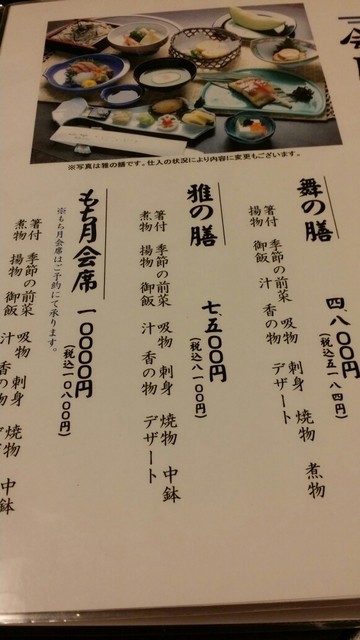 ※写真は雅の膳です。仕入の状況により内容に変更もございます。
舞の膳 四、八〇〇円
(税込五一八四円)
箸付 季節の前菜 吸物 刺身 焼物 煮物
揚物 御飯 汁 香の物 デザート
雅の膳 七、五〇〇円
(税込八一〇〇円)
箸付 季節の前菜 吸物 刺身 焼物 中鉢
煮物 揚物 御飯 汁 香の物 デザート
もち月会席 一〇〇〇〇円
(税込一〇八〇〇円)
※もち月会席はご予約にて承ります。
箸付 季節の前菜 吸物 刺身 焼物 中鉢
煮物 揚物 御飯 汁 香の物